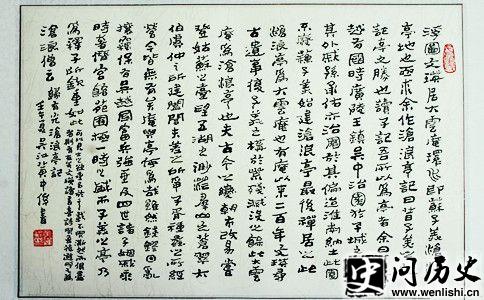 浮圖文瑛居大雲庵環水即蘇子美滄浪
亭地也亟求余作滄浪亭記曰昔子美之
記亭之勝也請子記吾所以為亭者余曰昔吴
越有國時廣陵王鎮吴其中治園於子城之西南
其外戚孫承佑亦治園於其偏迨淮海納土此園
不廢蘇子美始建滄浪亭最後禪者居之此
滄浪亭為大雲庵也有庵以來二百年文瑛尋
古遺事復子美之構於荒残滅没之餘此大雲
庵為滄浪亭也夫古今之變朝市改易嘗
登姑蘇之臺望五湖之渺茫羣山之蒼翠太
伯虞仲之所建闔閭夫差之所爭子胥種蠡之所經
營今皆無有矣庵與亭何為者哉雖然錢鏐因亂
攘竊保有吴越國富兵強垂及四世諸子姻戚乘
時奢僭宮館苑囿極一時之盛而子美之亭乃
為釋子所欽重如此
滄浪僧云 歸有光滄浪亭記
史问历史
www.wenlishi.cn